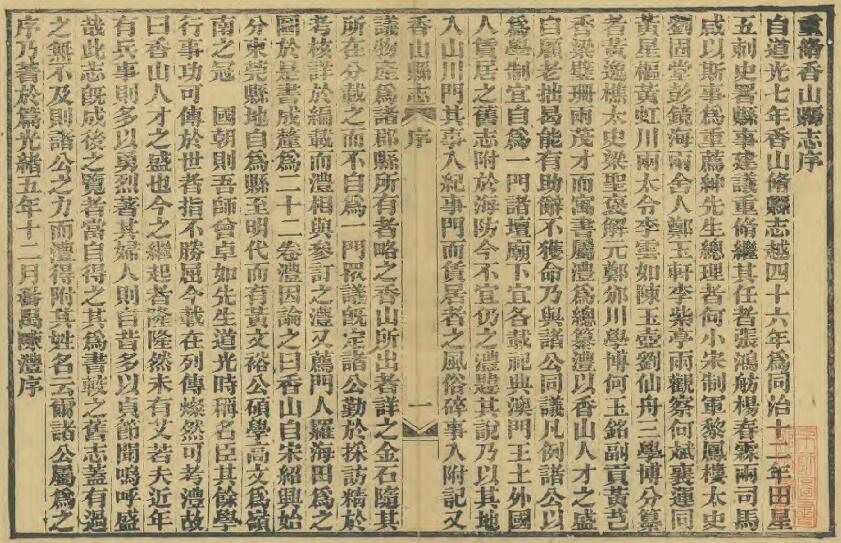 重修香山縣志序
自道光七年香山脩縣志越四十六年爲同治十二年田星
五刺史署縣事建議重脩繼其任者張鴻舫楊春霖兩司馬
咸以斯事爲重薦紳先生總理者何小宋制軍黎鳳樓太史
劉固堂彭鏡海兩舍人鄭玉軒李紫亭兩觀察何斌襄運同
黃星樞黃虹川兩太令李雲如陳玉壺劉仙舟三學博分纂
者黃逸樵太史梁聖褒解元鄭邠川學博何玉銘副貢黃芑
香梁璧珊兩茂才而寓書屬澧爲總纂澧以香山人才之盛
自顧老拙曷能有助辭不獲命乃與諸公同議凡例諸公以
爲學制宜自爲一門諸壇廟下宜各載祀典澳門王土外國
人賃居之舊志附於海防今不宜仍之澧韙其說乃以其地
入山川門其事入紀事門而賃居者之風俗碎事入附記又
香山縣志 序 一
議物產爲諸郡縣所有者略之香山所出者詳之金石隨其
所在分載之而不自爲一門衆議旣定諸公勤於採訪精於
考核詳於編載而澧相與參訂之澧又薦門人羅海田爲之
圖於是書成釐爲二十二卷澧因論之曰香山自宋紹興始
分東莞縣地自爲縣至明代而有黃文裕公碩學高文爲嶺
南之冠 國朝則吾師曾卓如先生道光時稱名臣其餘學
行事功可傳於世者指不勝屈今載在列傳燦然可考澧故
曰香山人才之盛也今之繼起者隆隆然未有艾若夫近年
有兵事則多以勇烈著其婦人則自昔多以貞節聞嗚呼盛
哉此志旣成後之覽者當自得之其爲書較之舊志蓋有過
之無不及則諸公之力而澧得附其姓名云爾諸公屬爲之
序乃著於篇光緒五年十二月番禺陳澧序